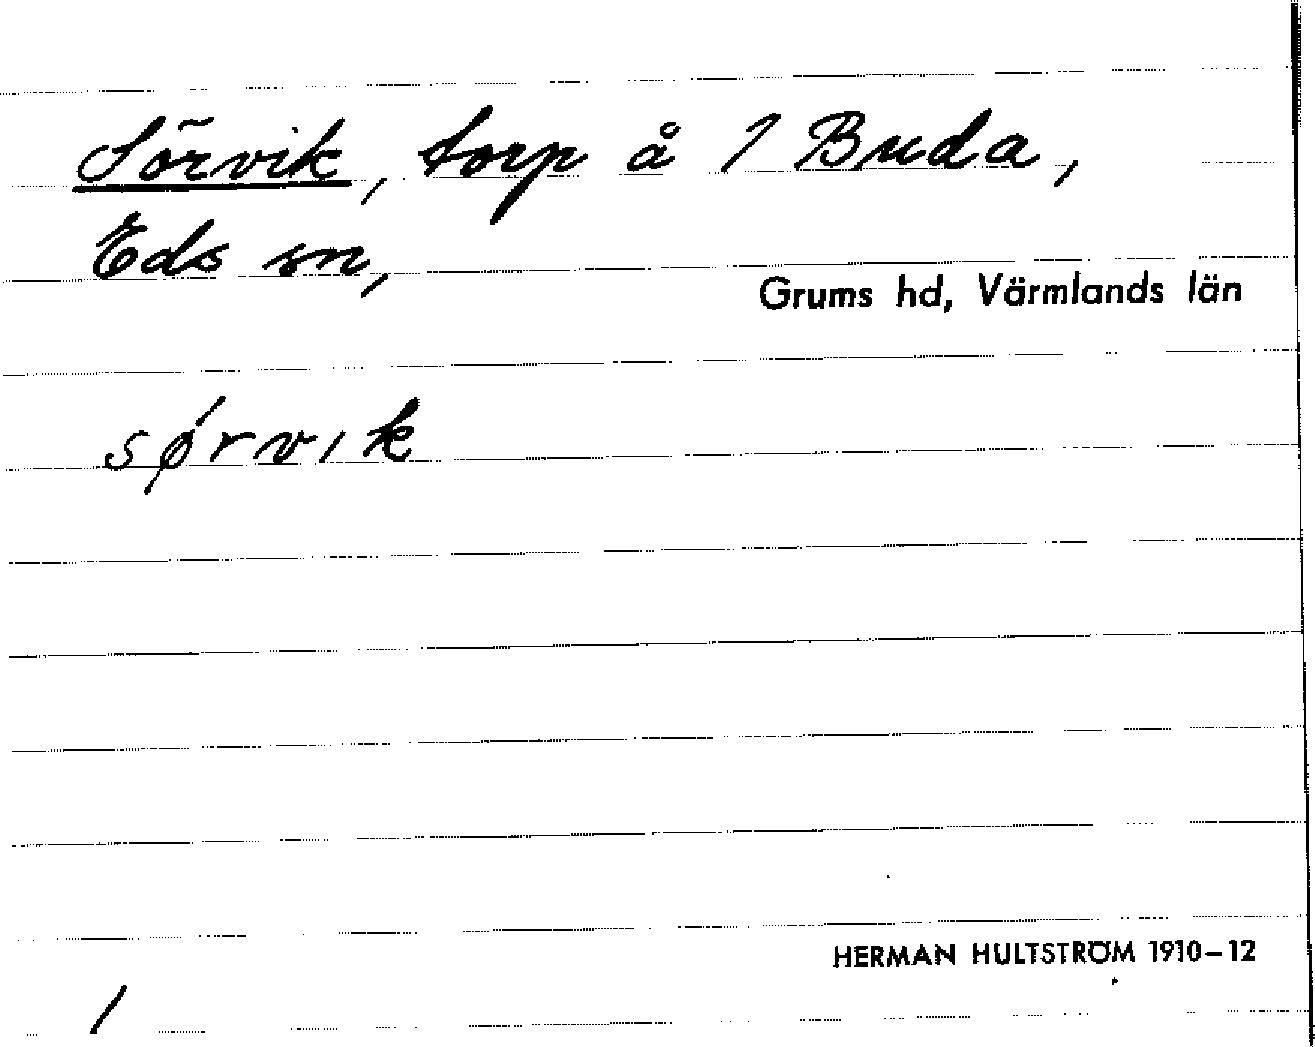 Sörvik, torp å 1 Buda,
Eds sn,
Grums hd, Värmlands län
sørvık
HERMAN HULTSTRÖM 1910–12
/